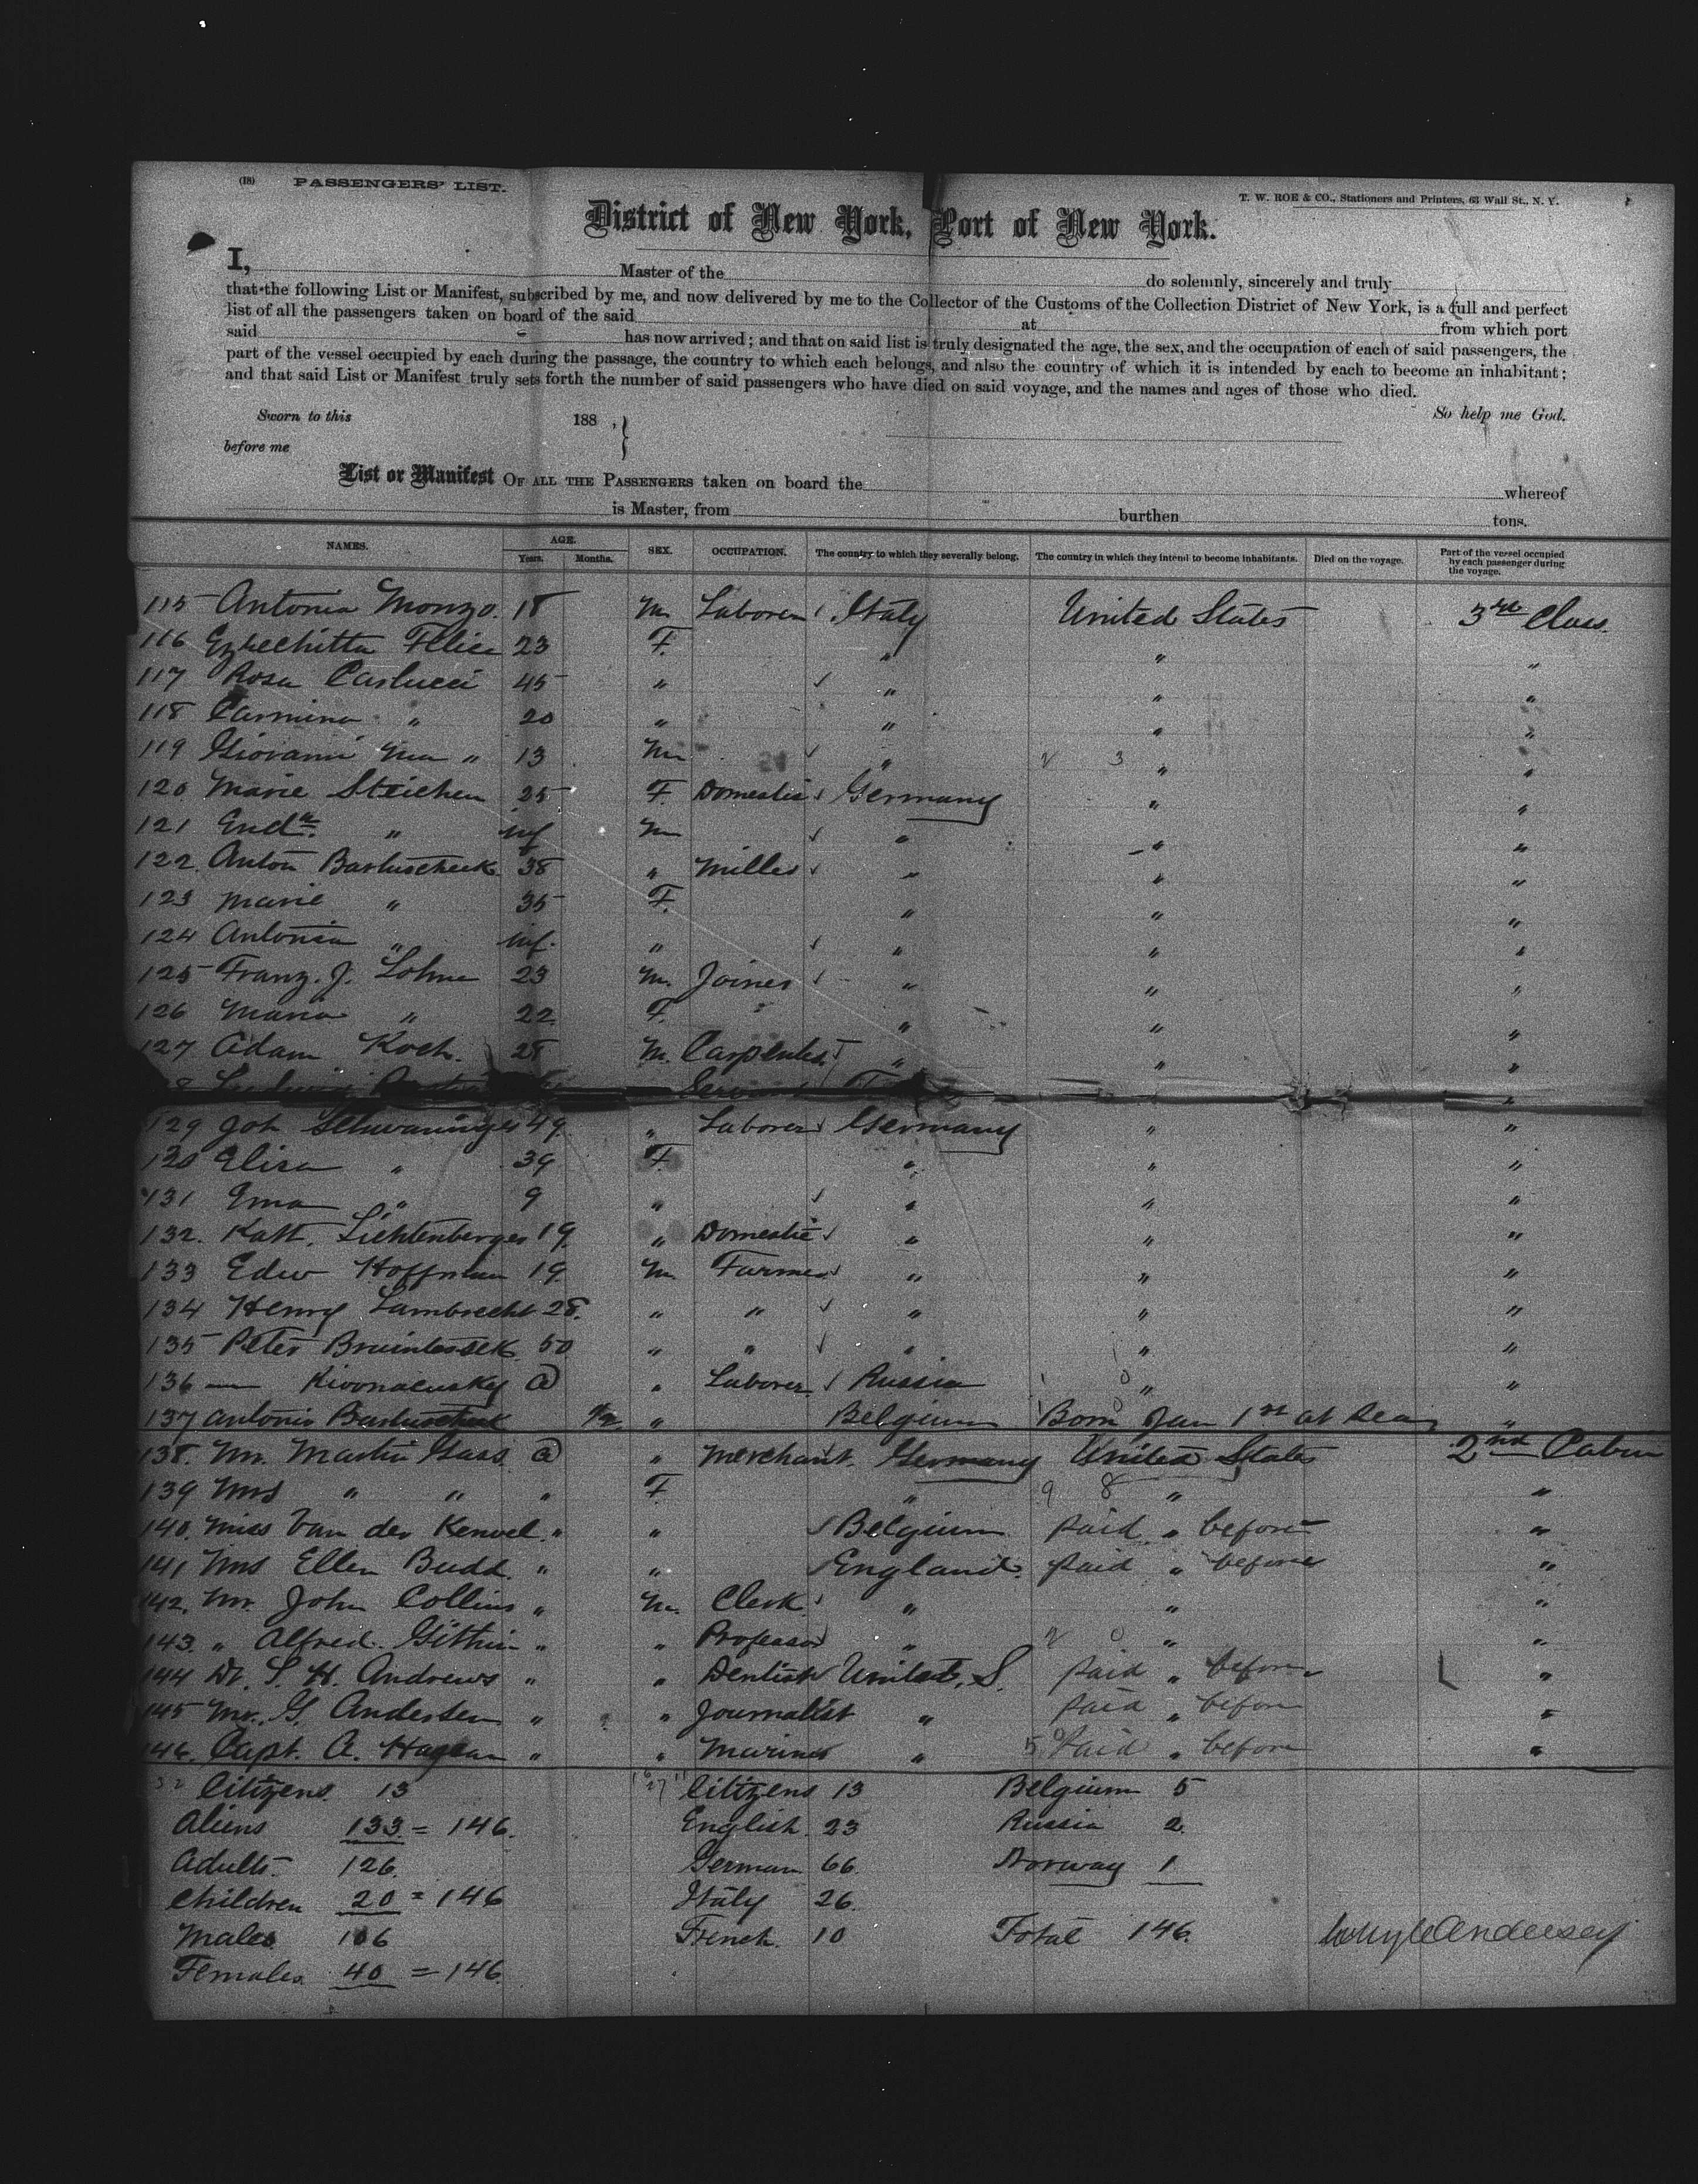 (18) PASSENGERS' LIST.
T. W. ROE & CO., Stationers and Printers, 63 Wall St., N. Y.
District of New York, Port of New York.
I, Master of the do solemnly, sincerely and truly
that the following List or Manifest, subscribed by me, and now delivered by me to the Collector of the Customs of the Collection District of New York, is a full and perfect
list of all the passengers taken on board of the said at from which port
said has now arrived; and that on said list is truly designated the age, the sex, and the occupation of each of said passengers, the
part of the vessel occupied by each during the passage, the country to which each belongs, and also the country of which it is intended by each to become an inhabitant;
and that said List or Manifest truly sets forth the number of said passengers who have died on said voyage, and the names and ages of those who died.
Sworn to this 188 , } So help me God.
before me
List or Manifest OF ALL THE PASSENGERS taken on board the whereof
is Master, from burthen tons.
NAMES. AGE. Years. Months. SEX. OCCUPATION. The country to which they severally belong. The country in which they intend to become inhabitants. Died on the voyage. Part of the vessel occupied by each passenger during the voyage.
115 Antonia Monzo. 18 M Laborer Italy United States 3rd Class.
116 Felice 23 F. " " "
117 Rosa Carlucci 45 " " " "
118 Carmina " 20 " " " "
119 Giovanni " 13 M " " "
120 Marie Steichen 25 F. Domestic Germany " "
121 " inf M " " "
122. Anton Bartuscheck 38 " Miller " " "
123 Marie " 35 F. " " "
124 Antonia " inf. " " " "
125 Franz. J. Lohne 23 M. Joiner " " "
126 Maria " 22 F. " " "
127 Adam Koch. 28 M. Carpenter " " "
129 Joh 49 " Laborer Germany " "
130 Elisa " 39 F. " " "
131 Ema " 9 " " " "
132. Kath. Lichtenberger 19. " Domestic " " "
133 Edw Hoffman 19 M Farmer " " "
134 Henry Lambrecht 28. " " " " "
135 Peter 50 " " " " "
136 — @ " Laborer Russia " "
137 Antonio Bartuscheck 1/2 " Belgium Born Jan 1st at Sea "
138. Mr. Martin Gass. @ " Merchant. Germany United States 2nd Cabin
139 Mrs " " " F. " 9 8 " "
140. Miss Van der " " Belgium paid " before "
141 Mrs Ellen Budd. " " England. paid " before "
142. Mr. John Collins " M. Clerk. " " "
143. " Alfred. " " Professor " " "
144 Dr. S. H. Andrews " " Dentist United. S. paid " before "
145 Mr. G. Andersen " " Journalist " paid " before "
146. Capt. A. " " Mariner " Paid " before "
Citizens. 13 Citizens 13 Belgium 5
Aliens 133 = 146. English. 23 Russia 2.
Adults 126. German 66. Norway 1
Children 20 = 146 Italy 26.
Males 106 French. 10 Total 146.
Females. 40 = 146.